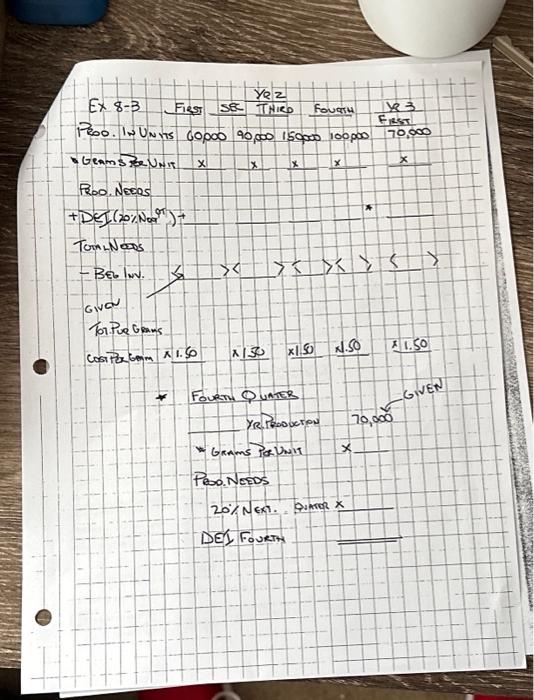 YR 2
Ex 8-3 FIRST SEC THIRD FOURTH YR 3
FIRST
PROD. IN UNITS 60,000 90,000 150,000 100,000 70,000
* GRAMS PER UNIT x x x x x
PROD. NEEDS
+ DEI (20% Next QT) + *
TOTAL NEEDS
- BEG INV. < > < > < > < > < >
GIVEN
TOT. PUR GRAMS
COST PER GRAM x 1.50 x 1.50 x 1.50 x 1.50 x 1.50
* FOURTH QUATER
GIVEN
YR. PRODUCTION 70,000
* GRAMS PER UNIT x
PROD. NEEDS
20% NEXT. QUATER x
DEI FOURTH